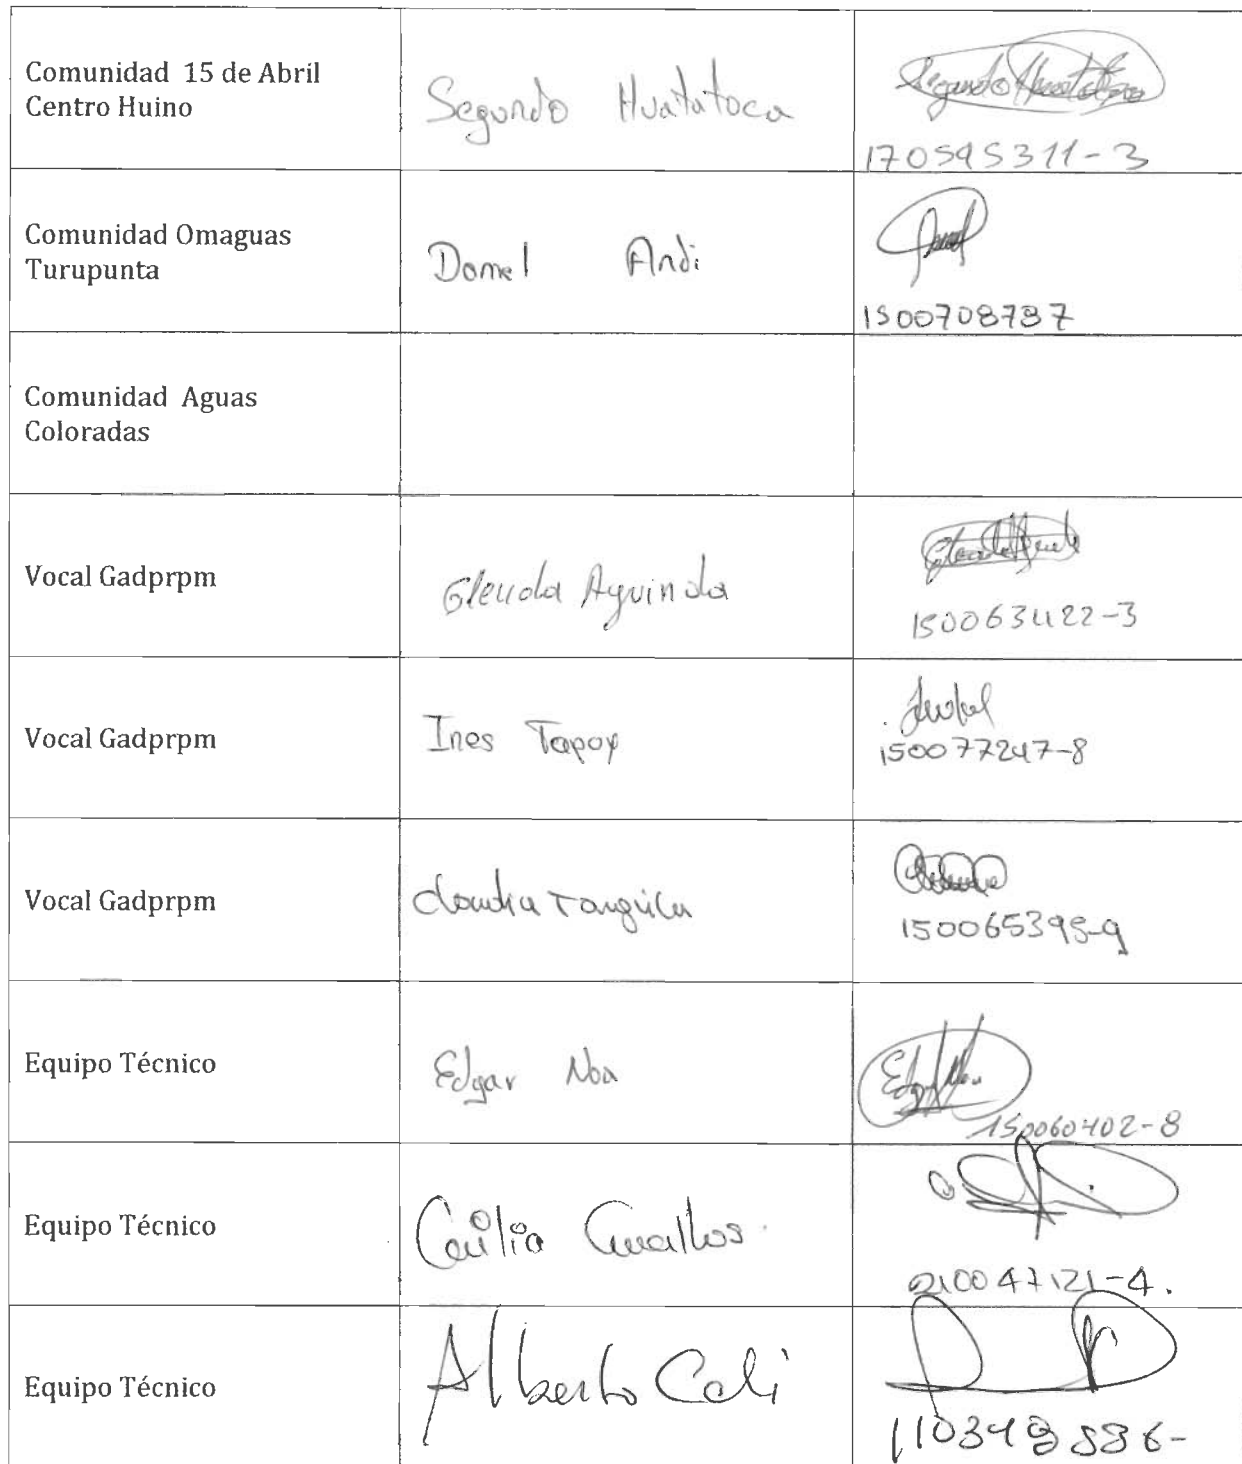 Comunidad 15 de Abril
Centro Huino
Segundo Huatatoca
Segundo Huatatoca
170595311-3
Comunidad Omaguas
Turupunta
Domel Andi
1500708787
Comunidad Aguas
Coloradas
Vocal Gadprpm
Glenda Aguinda
150063422-3
Vocal Gadprpm
Ines Tapoy
150077247-8
Vocal Gadprpm
Claudia Tanguila
150065395-9
Equipo Técnico
Edgar Noa
Edgar Noa
150060402-8
Equipo Técnico
Cecilia
210047121-4.
Equipo Técnico
Alberto Cali